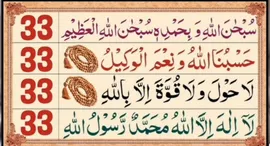 33 سُبْحٰنَ اللهِ وَ بِحَمْدِهٖ سُبْحٰنَ اللهِ الْعَظِيْمِ 33
33 حَسْبُنَا اللهُ وَنِعْمَ الْوَكِيْلُ
33 لَا حَوْلَ وَلَا قُوَّةَ اِلَّا بِاللهِ
33 لَاۤ اِلٰهَ اِلَّا اللهُ مُحَمَّدٌ رَّسُوْلُ اللهِ 33